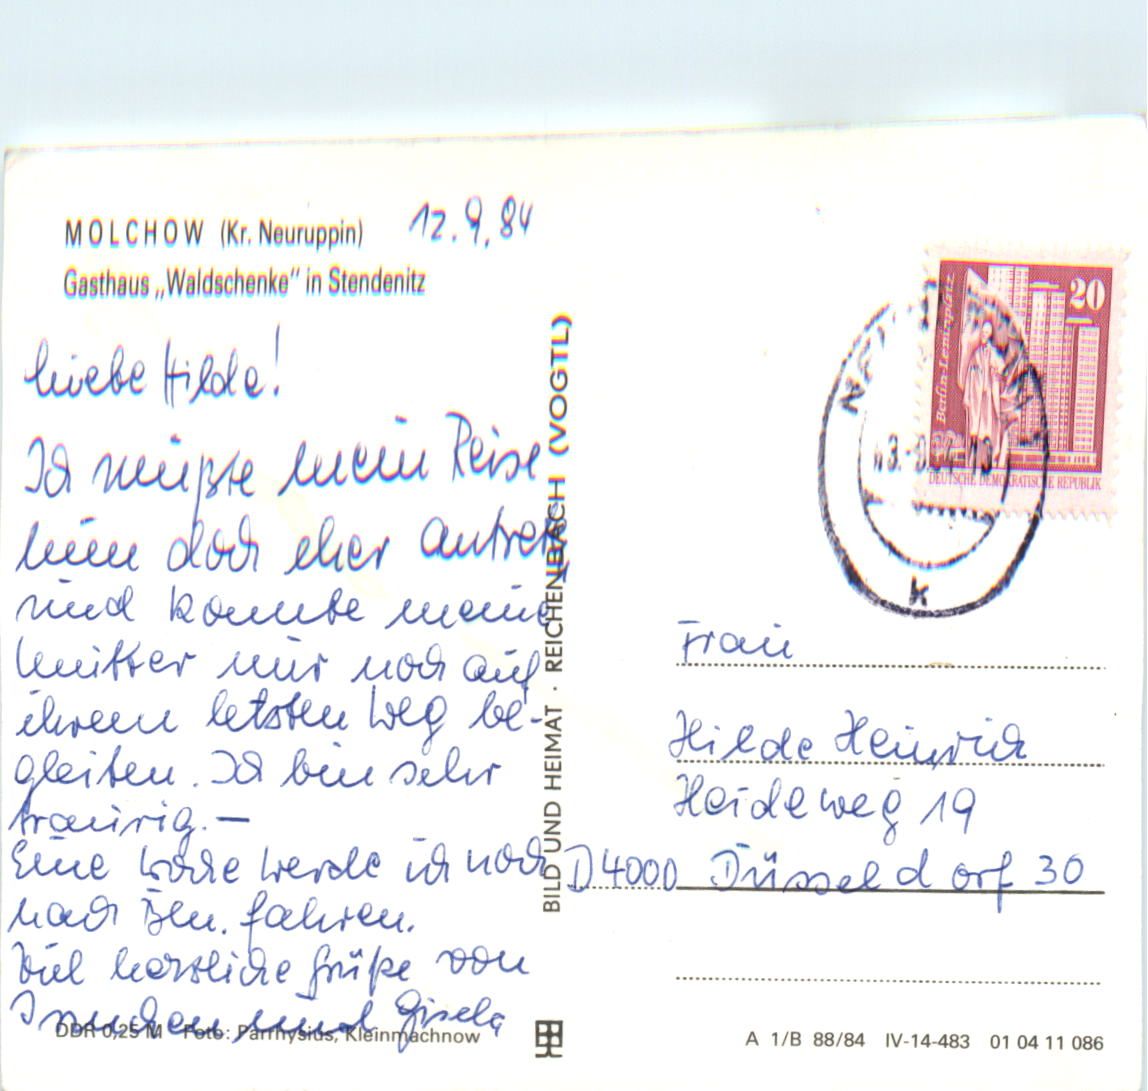 MOLCHOW (Kr. Neuruppin) 12.9.84
Gasthaus „Waldschenke" in Stendenitz
Liebe Hilde!
Ich mußte mein Reise
nun doch eher antreten
und konnte meine
Mutter nur noch auf
ihrem letzten Weg be-
gleiten. Ich bin sehr
traurig. —
Eine Woche werde ich noch
nach Bln. fahren.
Viel herzliche Grüße von
und Gisela
DDR 0,25 M Foto: Parrhysius, Kleinmachnow
BILD UND HEIMAT · REICHENBACH (VOGTL)
20
Berlin-Leninplatz
DEUTSCHE DEMOKRATISCHE REPUBLIK
k
Frau
Hilde Heinrich
Heideweg 19
D 4000 Düsseldorf 30
A 1/B 88/84 IV-14-483 01 04 11 086